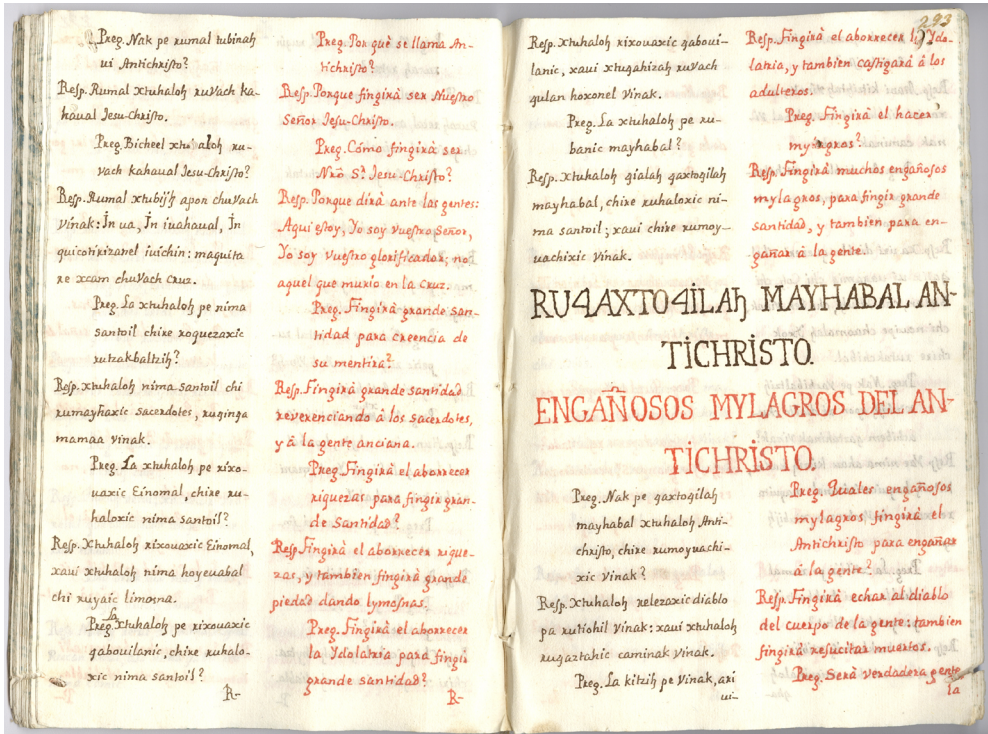 Preg. Nak pe rumal tubinaꜧ
ui Antichristo?
Resp. Rumal xtuhaloꜧ ruvach ka-
haual Iesu-Christo.
Preg. Bicheel xtuhaloꜧ ru-
vach kahaual Iesu-Christo?
Resp. Rumal xtubijꜧ apon chuvach
vinak: İn ua, İn iuahaual, İn
quicotirizanel iuichin: maquita
re xcam chuvach Cruz.
Preg. La xtuhaloꜧ pe nima
santoil chire roquezaxic
rutzakbaltziꜧ?
Resp. xtuhaloꜧ nima santoil chi
rumayhaxic sacerdotes, ruqinga
mamaa vinak.
Preg. La xtuhaloꜧ pe rixo-
uaxic Einomal, chire ru-
haloxic nima santoil?
Resp. Xtuhaloꜧ rixouaxic Einomal,
xaui xtuhaloꜧ nima hoyeuabal
chi ruyaic limosna.
Preg. La Xtuhaloꜧ pe rixouaxic
qabouilanic, chire ruhalo-
xic nima santoil?
R-
Preg. Por què se llama An-
tichristo?
Resp. Porque fingirà ser Nuestro
Señor Iesu-Christo.
Preg. Cómo fingirà ser
Nrō Sr. Iesu-Christo?
Resp. Porque dirà ante las gentes:
Aqui estoy, Yo soy vuestro Señor,
Yo soy vuestro glorificador, no
aquel que murio en la Cruz.
Preg. Fingirà grande san-
tidad para creencia de
su mentira?
Resp. Fingirà grande santidad
reverenciando à los sacerdotes,
y à la gente anciana.
Preg. Fingirà el aborrecer
riquezas para fingir gran-
de santidad?
Resp. Fingirà el aborrecer rique-
zas, y tambien fingirà grande
piedad dando lymosnas.
Preg. Fingirà el aborrecer
la Ydolatria para fingir
grande santidad?
R-
293
Resp. Xtuhaloꜧ rixouaxic qaboui-
lanic, xaui xtuqahizaꜧ ruvach
qulan hoxonel vinak.
Preg. La xtuhaloꜧ pe ru-
banic mayhabal?
Resp. Xtuhaloꜧ qialaꜧ qaxtoqilaꜧ
mayhabal, chire ruhaloxic ni-
ma santoil; xaui chire rumoy-
uachixic vinak.
Resp. Fingirà el aborrecer la Ydo-
latria, y tambien castigarà à los
adulteros.
Preg. Fingirà el hacer
mylagros?
Resp. Fingirà muchos engañosos
mylagros, para fingir grande
santidad, y tambien para en-
gañar à la gente.
RU4AXTO4İLAꜧ MAYHABAL AN-
TİCHRİSTO.
ENGAÑOSOS MYLAGROS DEL AN-
TİCHRİSTO.
Preg. Nak pe qaxtoqilaꜧ
mayhabal xtuhaloꜧ Anti-
christo, chire rumoyuachi-
xic vinak?
Resp. Xtuhaloꜧ relezaxic diablo
pa rutiohil vinak: xaui xtuhaloꜧ
ruqaztahic caminak vinak.
Preg. La kitziꜧ pe vinak, ari
ui-
Preg. Quales engañosos
mylagros fingirà el
Antichristo para engañar
à la gente?
Resp. Fingirà echar al diablo
del cuerpo de la gente: tambien
fingirà resucitar muertos.
Preg. Serà verdadera gente
la